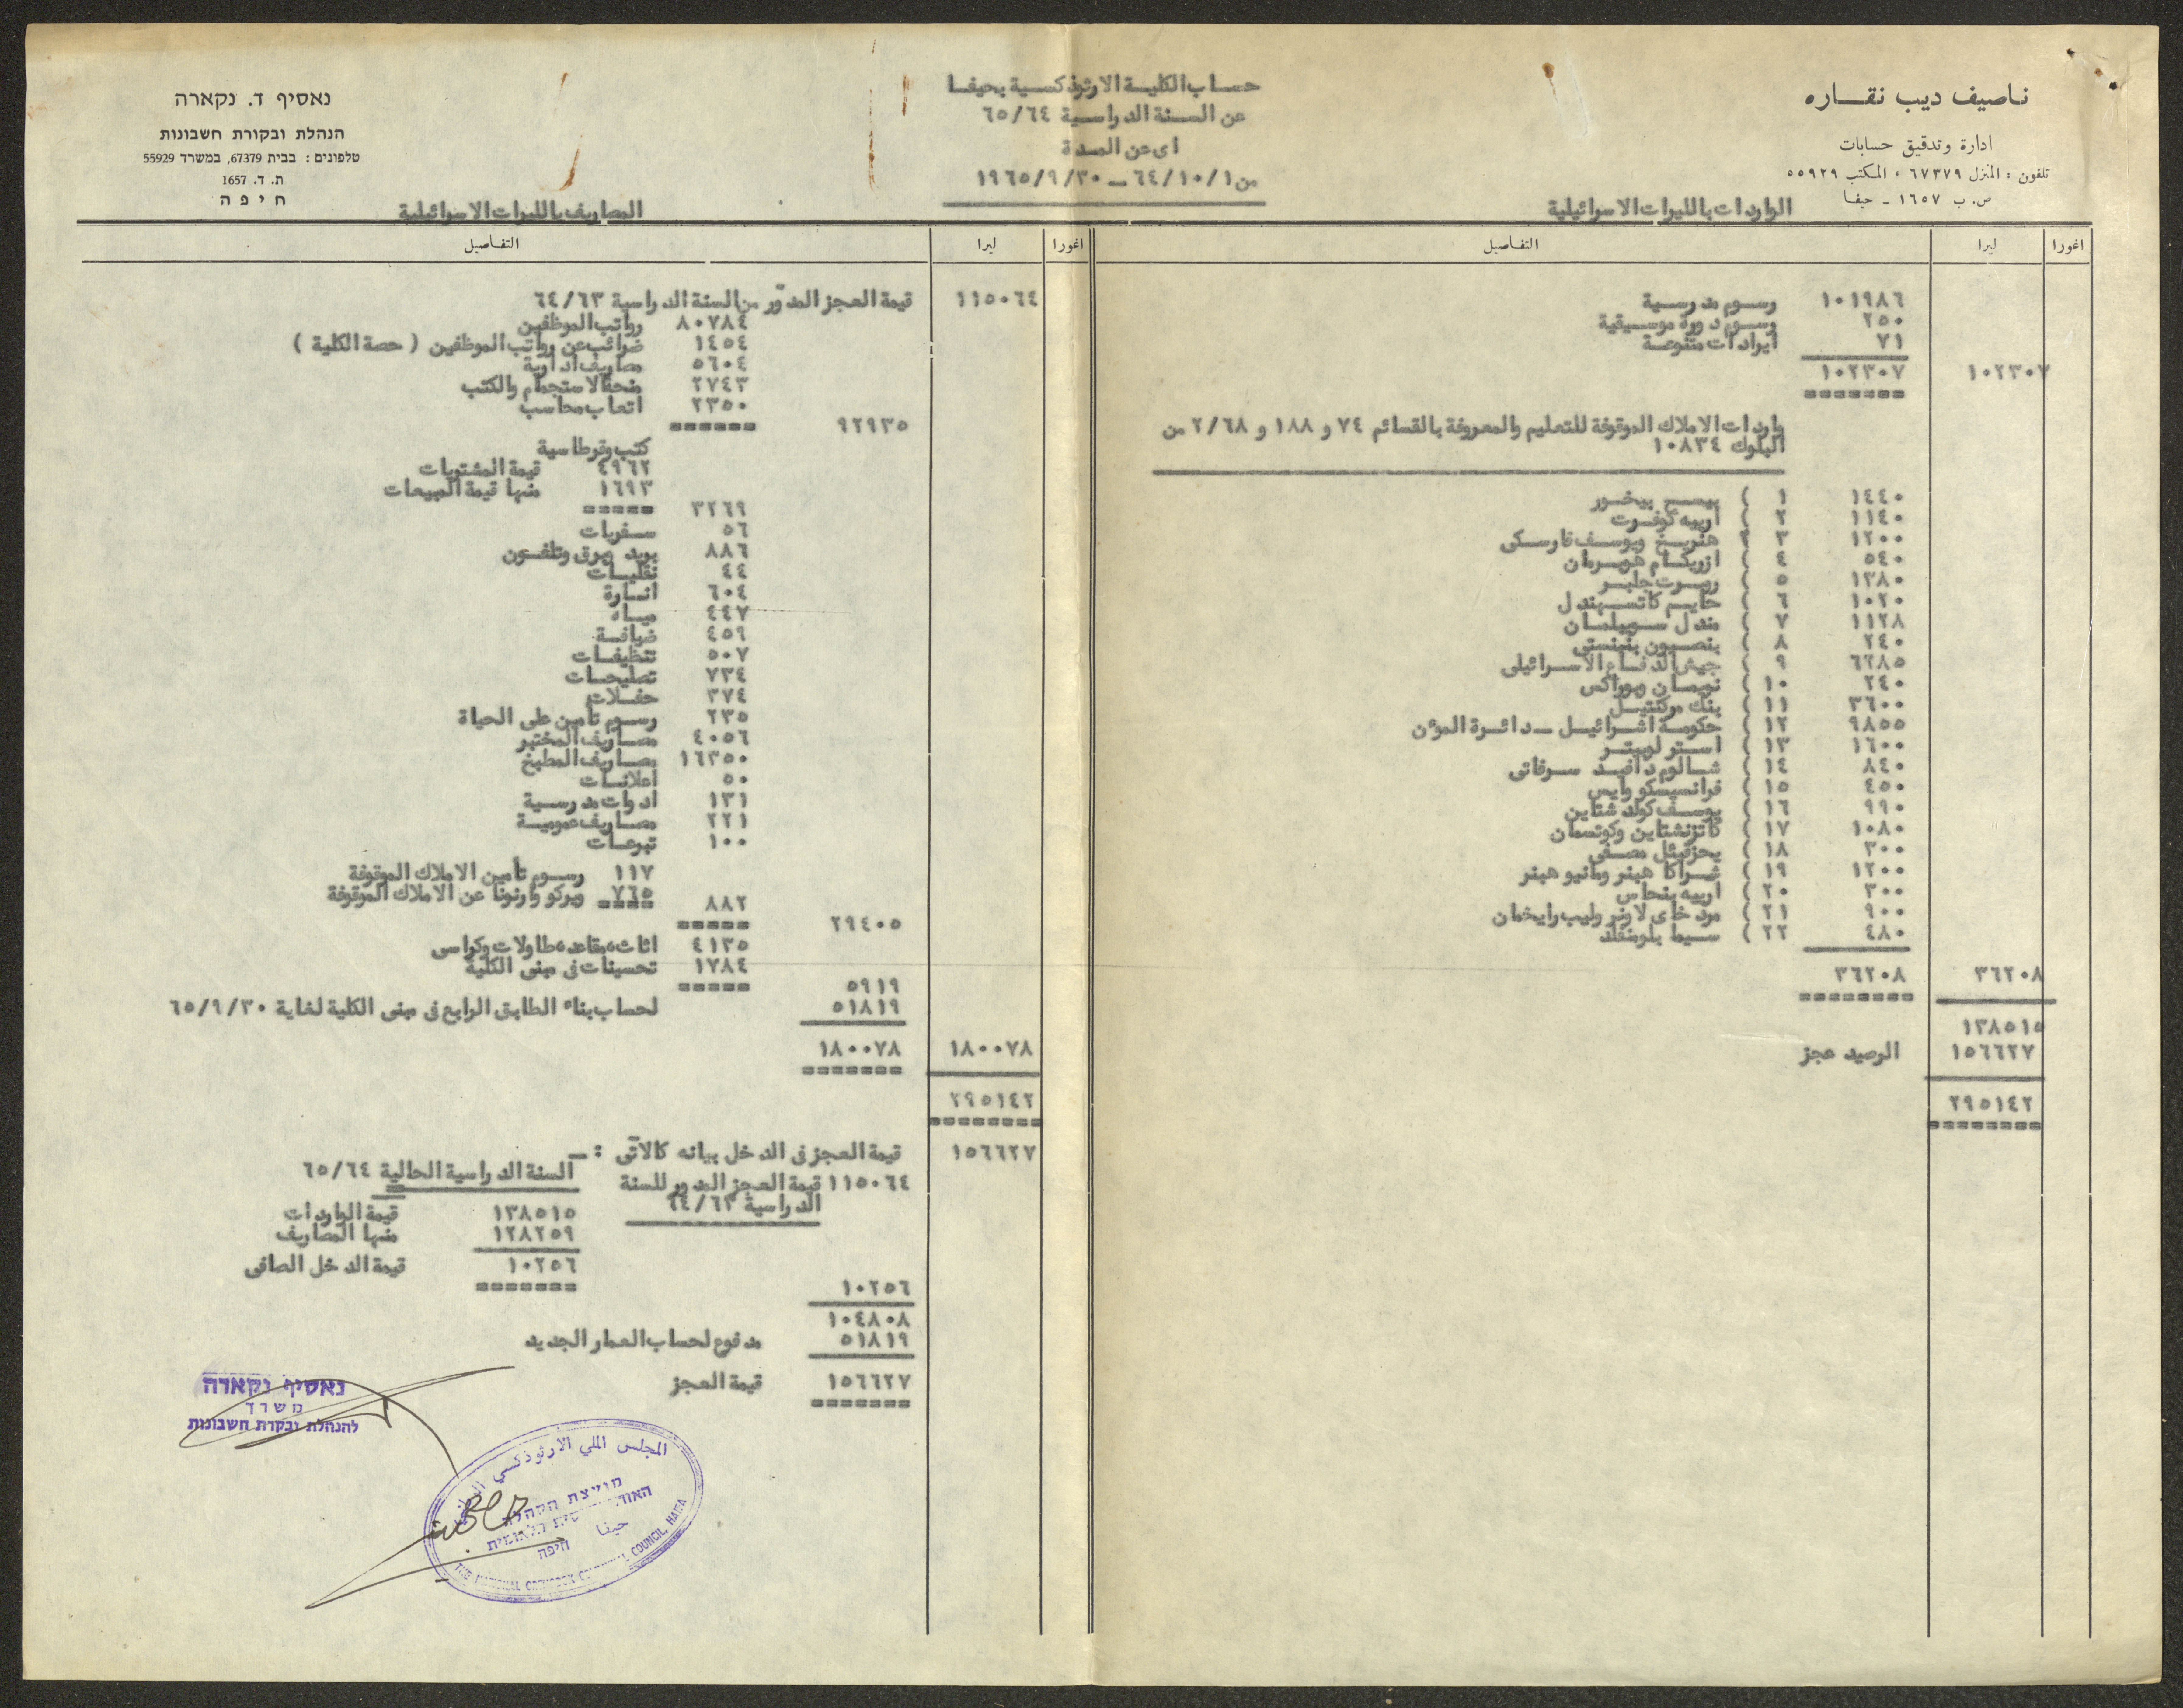 ناصيف ديب نقاره
ادارة وتدقيق حسابات
تلفون : المنزل ٦٧٣٧٩ ، المكتب ٥٥٩٢٩
ص. ب ١٦٥٧ ـ حيفا
حساب الكلية الارثوذكسية بحيفا
عن السنة الدراسية ٦٥/٦٤
اى عن المدة
من ٦٤/١٠/١ ــ ١٩٦٥/٩/٣٠
נאסיף ד. נקארה
הנהלת ובקורת חשבונות
טלפונים : בבית 67379, במשרד 55929
ת. ד. 1657
חיפה
الواردات بالليرات الاسرائيلية
اغورا ليرا التفاصيل
١٠١٩٨٦ رسوم مدرسية
٢٥٠ رسوم دورة موسيقية
٧١ ايرادات متنوعة
١٠٢٣٠٧ ١٠٢٣٠٧
واردات الاملاك الموقوفة للتعليم والمعروفة بالقسائم ٧٤ و ١٨٨ و ٢/٦٨ من
البلوك ١٠٨٣٤
١٤٤٠ ١ ) بيسح بيخور
١١٤٠ ٢ ) اربيه كوفرت
١٢٠٠ ٣ ) هنريخ ويوسف فارسكى
٥٤٠ ٤ ) ازريكام هوبرمان
١٣٨٠ ٥ ) روبرت جلبر
١٠٢٠ ٦ ) حاييم كاتسهندل
١١٢٨ ٧ ) مندل سوبلمان
٢٤٠ ٨ ) بنصيون بنبنستى
٦٢٨٥ ٩ ) جيش الدفاع الاسرائيلى
٢٤٠ ١٠ ) نويمان وبوراكس
٣٦٠٠ ١١ ) بنك مركنتيل
٩٨٥٥ ١٢ ) حكومة اسرائيل ــ دائرة المؤن
١٦٠٠ ١٣ ) استر لوبيتر
٨٤٠ ١٤ ) شالوم دافيد سرفاتى
٤٥٠ ١٥ ) فرانسيسكو وايس
٩٩٠ ١٦ ) يوسف كولد شتاين
١٠٨٠ ١٧ ) كاتزنشتاين وكوتسمان
٣٠٠ ١٨ ) يحزقيئل مصفى
١٢٠٠ ١٩ ) شراكا هبنر ومانيو هبنر
٣٠٠ ٢٠ ) اربيه بنحاس
٩٠٠ ٢١ ) مردخاى لاونر وليب رايخمان
٤٨٠ ٢٢ ) سيما بلومنفلد
٣٦٢٠٨ ٣٦٢٠٨
١٣٨٥١٥
١٥٦٦٢٧ الرصيد عجز
٢٩٥١٤٢
المصاريف بالليرات الاسرائيلية
اغورا ليرا التفاصيل
١١٥٠٦٤ قيمة العجز المدوّر من السنة الدراسية ٦٤/٦٣
٨٠٧٨٤ رواتب الموظفين
١٤٥٤ ضرائب عن رواتب الموظفين ( حصة الكلية )
٥٦٠٤ مصاريف ادارية
٢٧٤٣ منحة الاستجمام والكتب
٢٣٥٠ اتعاب محاسب
٩٢٩٣٥
كتب وقرطاسية
٤٩٦٢ قيمة المشتويات
١٦٩٣ منها قيمة المبيعات
٣٢٦٩
٥٦ سفريات
٨٨٦ بريد وبرق وتلفون
٤٤ نقليات
٦٠٤ انارة
٤٤٧ مياه
٤٥٩ ضيافة
٥٠٧ تنظيفات
٧٣٤ تصليحات
٣٧٤ حفلات
٢٣٥ رسوم تأمين على الحياة
٤٠٥٦ مصاريف المختبر
١٦٣٥٠ مصاريف المطبخ
٥٠ اعلانات
١٣١ ادوات مدرسية
٢٢١ مصاريف عمومية
١٠٠ تبرعات
١١٧ رسوم تأمين الاملاك الموقوفة
٧٦٥ ويركو وارنونا عن الاملاك الموقوفة
٨٨٢
٢٩٤٠٥
٤١٣٥ اثاث، مقاعد، طاولات وكراسى
١٧٨٤ تحسينات فى مبنى الكلية
٥٩١٩
٥١٨١٩ لحساب بناء الطابق الرابع فى مبنى الكلية لغاية ٦٥/٩/٣٠
١٨٠٠٧٨ ١٨٠٠٧٨
٢٩٥١٤٢
١٥٦٦٢٧ قيمة العجز فى الدخل بيانه كالآتى : ــ
السنة الدراسية الحالية ٦٥/٦٤
١١٥٠٦٤ قيمة العجز المدور للسنة
الدراسية ٦٤/٦٣
١٣٨٥١٥ قيمة الواردات
١٢٨٢٥٩ منها المصاريف
١٠٢٥٦ قيمة الدخل الصافى
١٠٢٥٦
١٠٤٨٠٨
٥١٨١٩ مدفوع لحساب العمار الجديد
١٥٦٦٢٧ قيمة العجز
נאסיף נקארה
משרד
להנהלת ובקרת חשבונות
المجلس الملي الارثوذكسي
מועצת הקהלה
חיפה
حيفا
COUNCIL, HAIFA